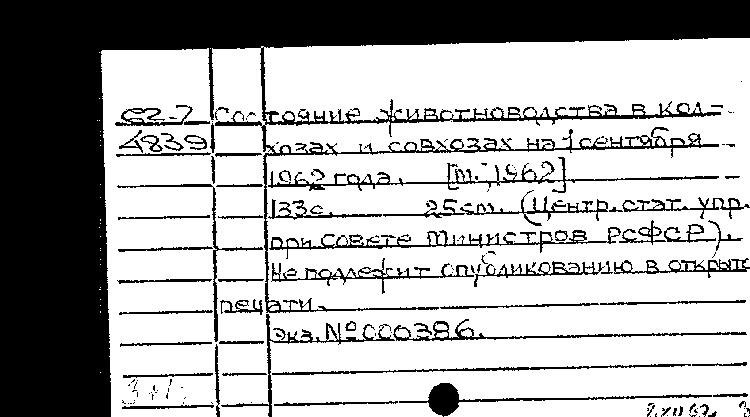 С2-7 Состояние животноводства в кол-
4839 хозах и совхозах на 1 сентября
1962 года. [М., 1962].
133с. 25см. (Центр. стат. упр.
при Совете Министров РСФСР).
Не подлежит опубликованию в открыто
печати.
Экз. № 000386.